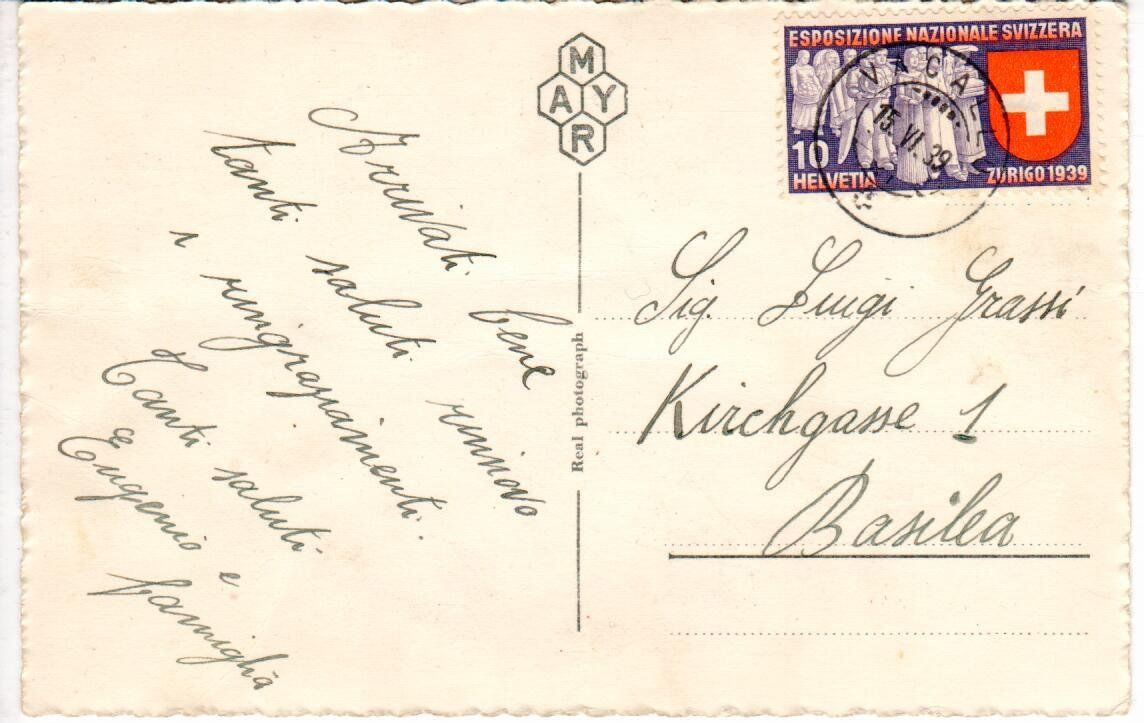 Arrivati bene
tanti saluti rinnovo
e ringraziamenti.
Tanti saluti.
Eugenio e
famiglia
MAYR
Real photograph
ESPOSIZIONE NAZIONALE SVIZZERA
10
HELVETIA
ZURIGO 1939
15.VI.39
Sig. Luigi Grassi
Kirchgasse 1
Basilea